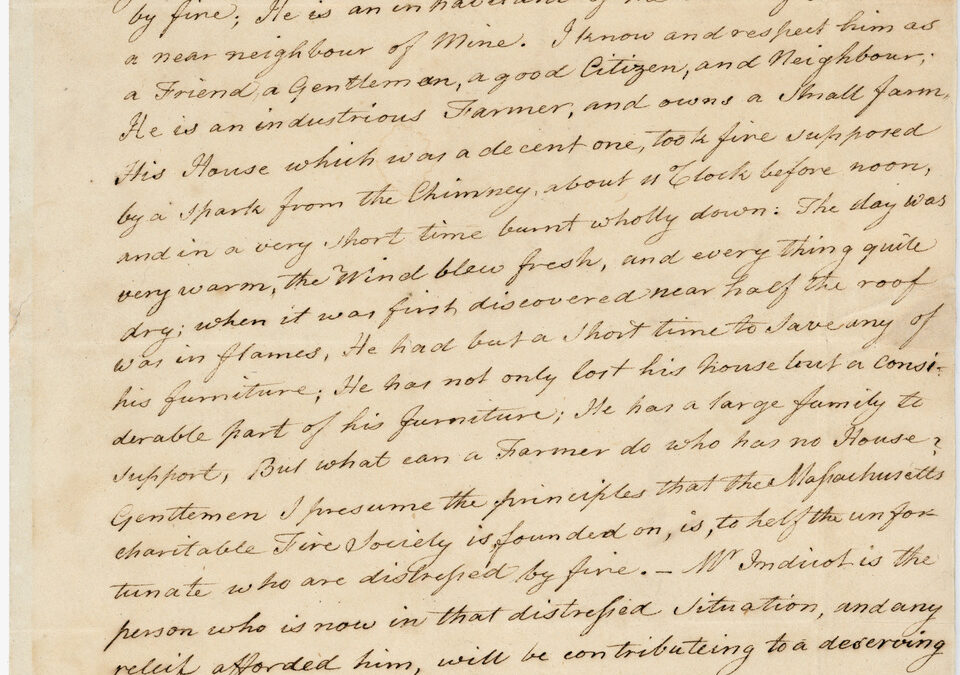 by fire; He is an inhabitant of the
a near neighbour of Mine. I know and respect him as
a Friend, a Gentleman, a good Citizen, and Neighbour;
He is an industrious Farmer, and owns a Small farm,
His House which was a decent one, took fire supposed
by a spark from the Chimney, about 11 Clock before noon,
and in a very short time burnt wholly down: The day was
very warm, the Wind blew fresh, and every thing quite
dry; when it was first discovered near half the roof
was in flames, He had but a Short time to save any of
his furniture; He has not only lost his house but a consi-
derable part of his furniture; He has a large family to
support, But what can a Farmer do who has no House?
Gentlemen I presume the principles that the Massachusetts
charitable Fire Society is founded on, is, to help the unfor
tunate who are distressed by fire. — Mr Indicot is the
person who is now in that distressed Situation, and any
releif afforded him, will be contributeing to a deserving